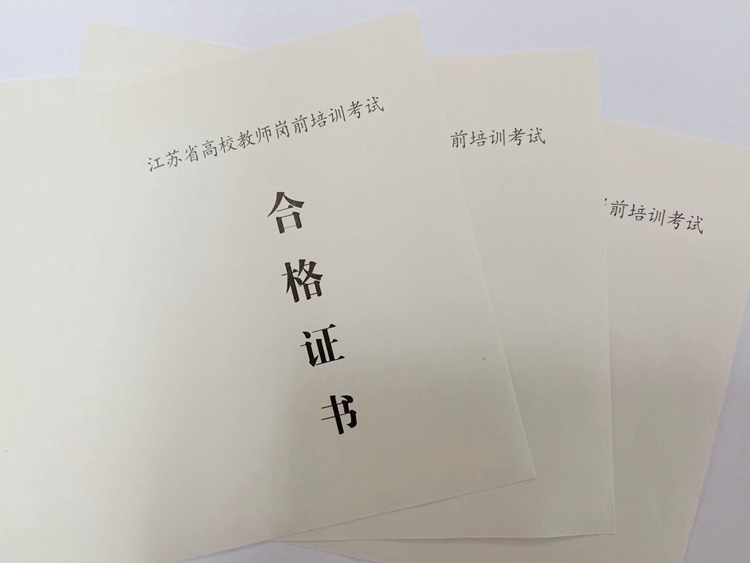 江苏省高校教师岗前培训考试
合
格
证
书
前培训考试
前培训考试